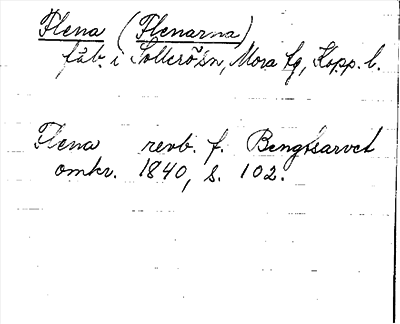 Flena (Flenarna)
fäb. i Sollerön, Mora fg, Kopp. l.
Flena revb. f. Bengtsarvet
omkr. 1840, s. 102.